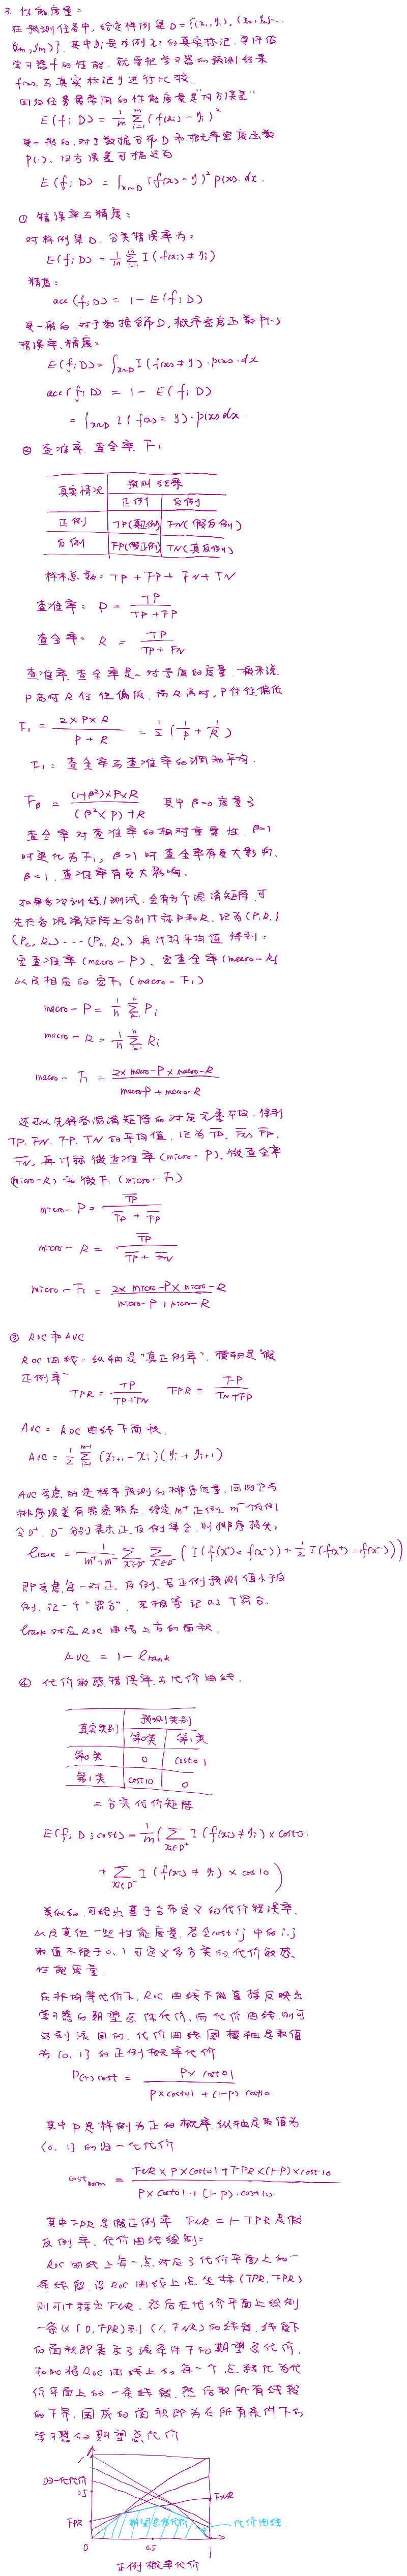 3. 性能度量:
在预测任务中, 给定样例集 D = {(x₁, y₁), (x₂, y₂)...
(xm, ym)}, 其中yi是示例 xi 的真实标记. 要评估
学习器 f 的性能, 就要把学习器的预测结果
f(x) 与真实标记 y 进行比较.
回归任务最常用的性能度量是"均方误差"
E(f; D) = 1/m Σ_{i=1}^{m} (f(xi) - yi)²
更一般的, 对于数据分布 D 和概率密度函数
p(·), 均方误差可描述为
E(f; D) = ∫_{x~D} (f(x) - y)² p(x) dx.
① 错误率与精度:
对样例集 D, 分类错误率为:
E(f; D) = 1/m Σ_{i=1}^{m} I(f(xi) ≠ yi)
精度:
acc(f; D) = 1 - E(f; D)
更一般的 对于数据分布 D, 概率密度函数 p(·)
错误率、精度:
E(f; D) = ∫_{x~D} I(f(x) ≠ y)·p(x)·dx
acc(f; D) = 1 - E(f; D)
= ∫_{x~D} I(f(x) = y)·p(x) dx
② 查准率, 查全率, F₁
真实情况 预测结果
正例 反例
正例 TP(真正例) FN(假反例)
反例 FP(假正例) TN(真反例)
样本总数: TP + FP + FN + TN
查准率: P = TP / (TP + FP)
查全率: R = TP / (TP + FN)
查准率, 查全率是一对矛盾的度量. 一般来说,
P 高时 R 往往偏低, 而 R 高时, P 往往偏低
F₁ = 2×P×R / (P + R) = 1/2 (1/P + 1/R)
F₁: 查全率与查准率的调和平均.
Fβ = (1+β²)×P×R / ((β²×P)+R) 其中 β>0 度量了
查全率对查准率的相对重要性. β=1
时退化为 F₁, β>1 时 查全率有更大影响,
β<1, 查准率有更大影响.
如果多次训练/测试, 会有多个混淆矩阵, 可
先在各混淆矩阵上分别计算 P 和 R, 记为 (P₁, R₁)
(P₂, R₂) ---- (Pn, Rn) 再计算平均值 得到:
宏查准率 (macro-P), 宏查全率 (macro-R)
以及相应的宏F₁ (macro-F₁)
macro-P = 1/n Σ_{i=1}^{n} Pi
macro-R = 1/n Σ_{i=1}^{n} Ri
macro-F₁ = 2× macro-P × macro-R / (macro-P + macro-R)
还可以先将各混淆矩阵的对应元素平均, 得到
TP, FN, FP, TN 的平均值, 记为 T̅P̅, F̅N̅, F̅P̅,
T̅N̅, 再计算 微查准率 (micro-P), 微查全率
(micro-R) 和微F₁ (micro-F₁)
micro-P = T̅P̅ / (T̅P̅ + F̅P̅)
micro-R = T̅P̅ / (T̅P̅ + F̅N̅)
micro-F₁ = 2× micro-P × micro-R / (micro-P + micro-R)
③ ROC 和 AUC
ROC 曲线: 纵轴是"真正例率", 横轴是"假
正例率"
TPR = TP / (TP+FN) FPR = FP / (TN+FP)
AUC = ROC 曲线下面积.
AUC = 1/2 Σ_{i=1}^{m-1} (xi+1 - xi)(yi + yi+1)
AUC 考虑的是样本预测的排序质量, 因此它与
排序误差有紧密联系. 给定 m⁺ 正例, m⁻ 个反例
令 D⁺, D⁻ 分别表示正、反例集合, 则排序损失:
ℓrank = 1/(m⁺m⁻) Σ_{x⁺∈D⁺} Σ_{x⁻∈D⁻} (I(f(x⁺) < f(x⁻)) + 1/2 I(f(x⁺) = f(x⁻)))
即考虑每一对正、反例, 若正例预测值小于反
例, 记一个"罚分", 若相等记 0.5 个罚分.
ℓrank 对应 ROC 曲线上方的面积.
AUC = 1 - ℓrank
④ 代价敏感错误率与代价曲线.
真实类别 预测类别
第0类 第1类
第0类 0 cost01
第1类 cost10 0
二分类代价矩阵
E(f; D; cost) = 1/m (Σ_{xi∈D⁺} I(f(xi) ≠ yi) × cost01
+ Σ_{xi∈D⁻} I(f(xi) ≠ yi) × cost10)
类似的, 可给出基于分布定义的代价错误率,
以及其他一些性能度量. 若令 cost ij 中的 i.j
取值不限于 0, 1 可定义多分类的代价敏感
性能度量
在非均等代价下, ROC 曲线不能直接反映出
学习器的期望总体代价, 而代价曲线则可
达到该目的. 代价曲线图横轴是取值
为 [0, 1] 的正例概率代价
P(+)cost = P× cost01 / (P×cost01 + (1-P)·cost10)
其中 P 是样例为正的概率. 纵轴是取值为
[0, 1] 的归一化代价
costnorm = (FNR × P× cost01 + FPR × (1-P) × cost10) / (P× cost01 + (1-P)·cost10)
其中 FPR 是假正例率 FNR = 1- TPR 是假
反例率, 代价曲线绘制:
ROC 曲线上每一点, 对应了代价平面上的一
条线段, 设 ROC 曲线上点坐标 (TPR, FPR)
则可计算出 FNR, 然后在代价平面上绘制
一条从 (0, FPR) 到 (1, FNR) 的线段, 线段下
的面积即表示了该条件下的期望总代价.
如此将 ROC 曲线上的每一个点转化为代
价平面上的一条线段, 然后取所有线段
的下界, 围成的面积即为在所有条件下
学习器的期望总代价
1
归一化代价
0.5
FNR
FPR
期望总体代价
代价曲线
0
0.5
1
正例概率代价